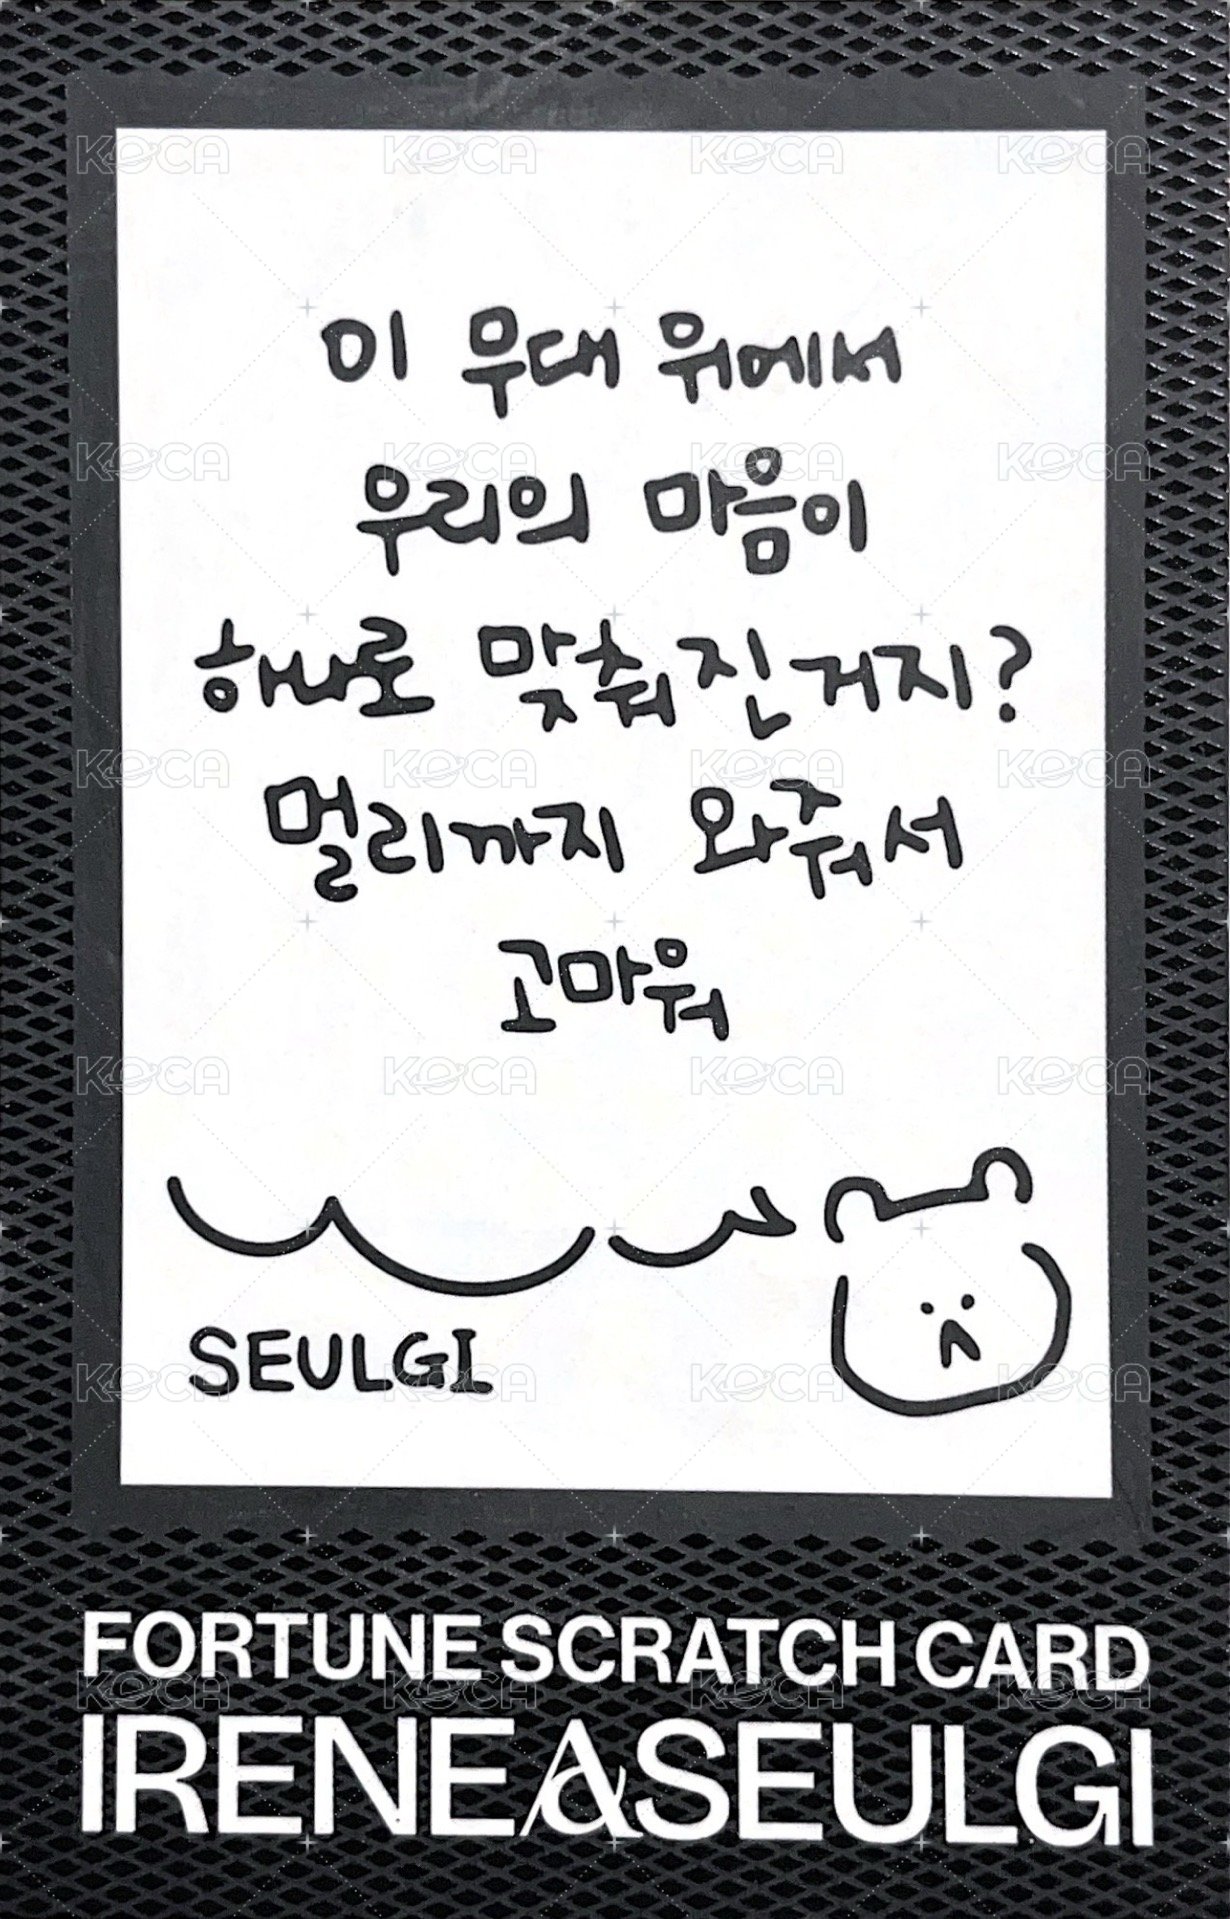 이 무대 위에서
우리의 마음이
하나로 맞춰진거지?
멀리까지 와줘서
고마워
SEULGI
FORTUNE SCRATCH CARD
IRENE&SEULGI
KOCA